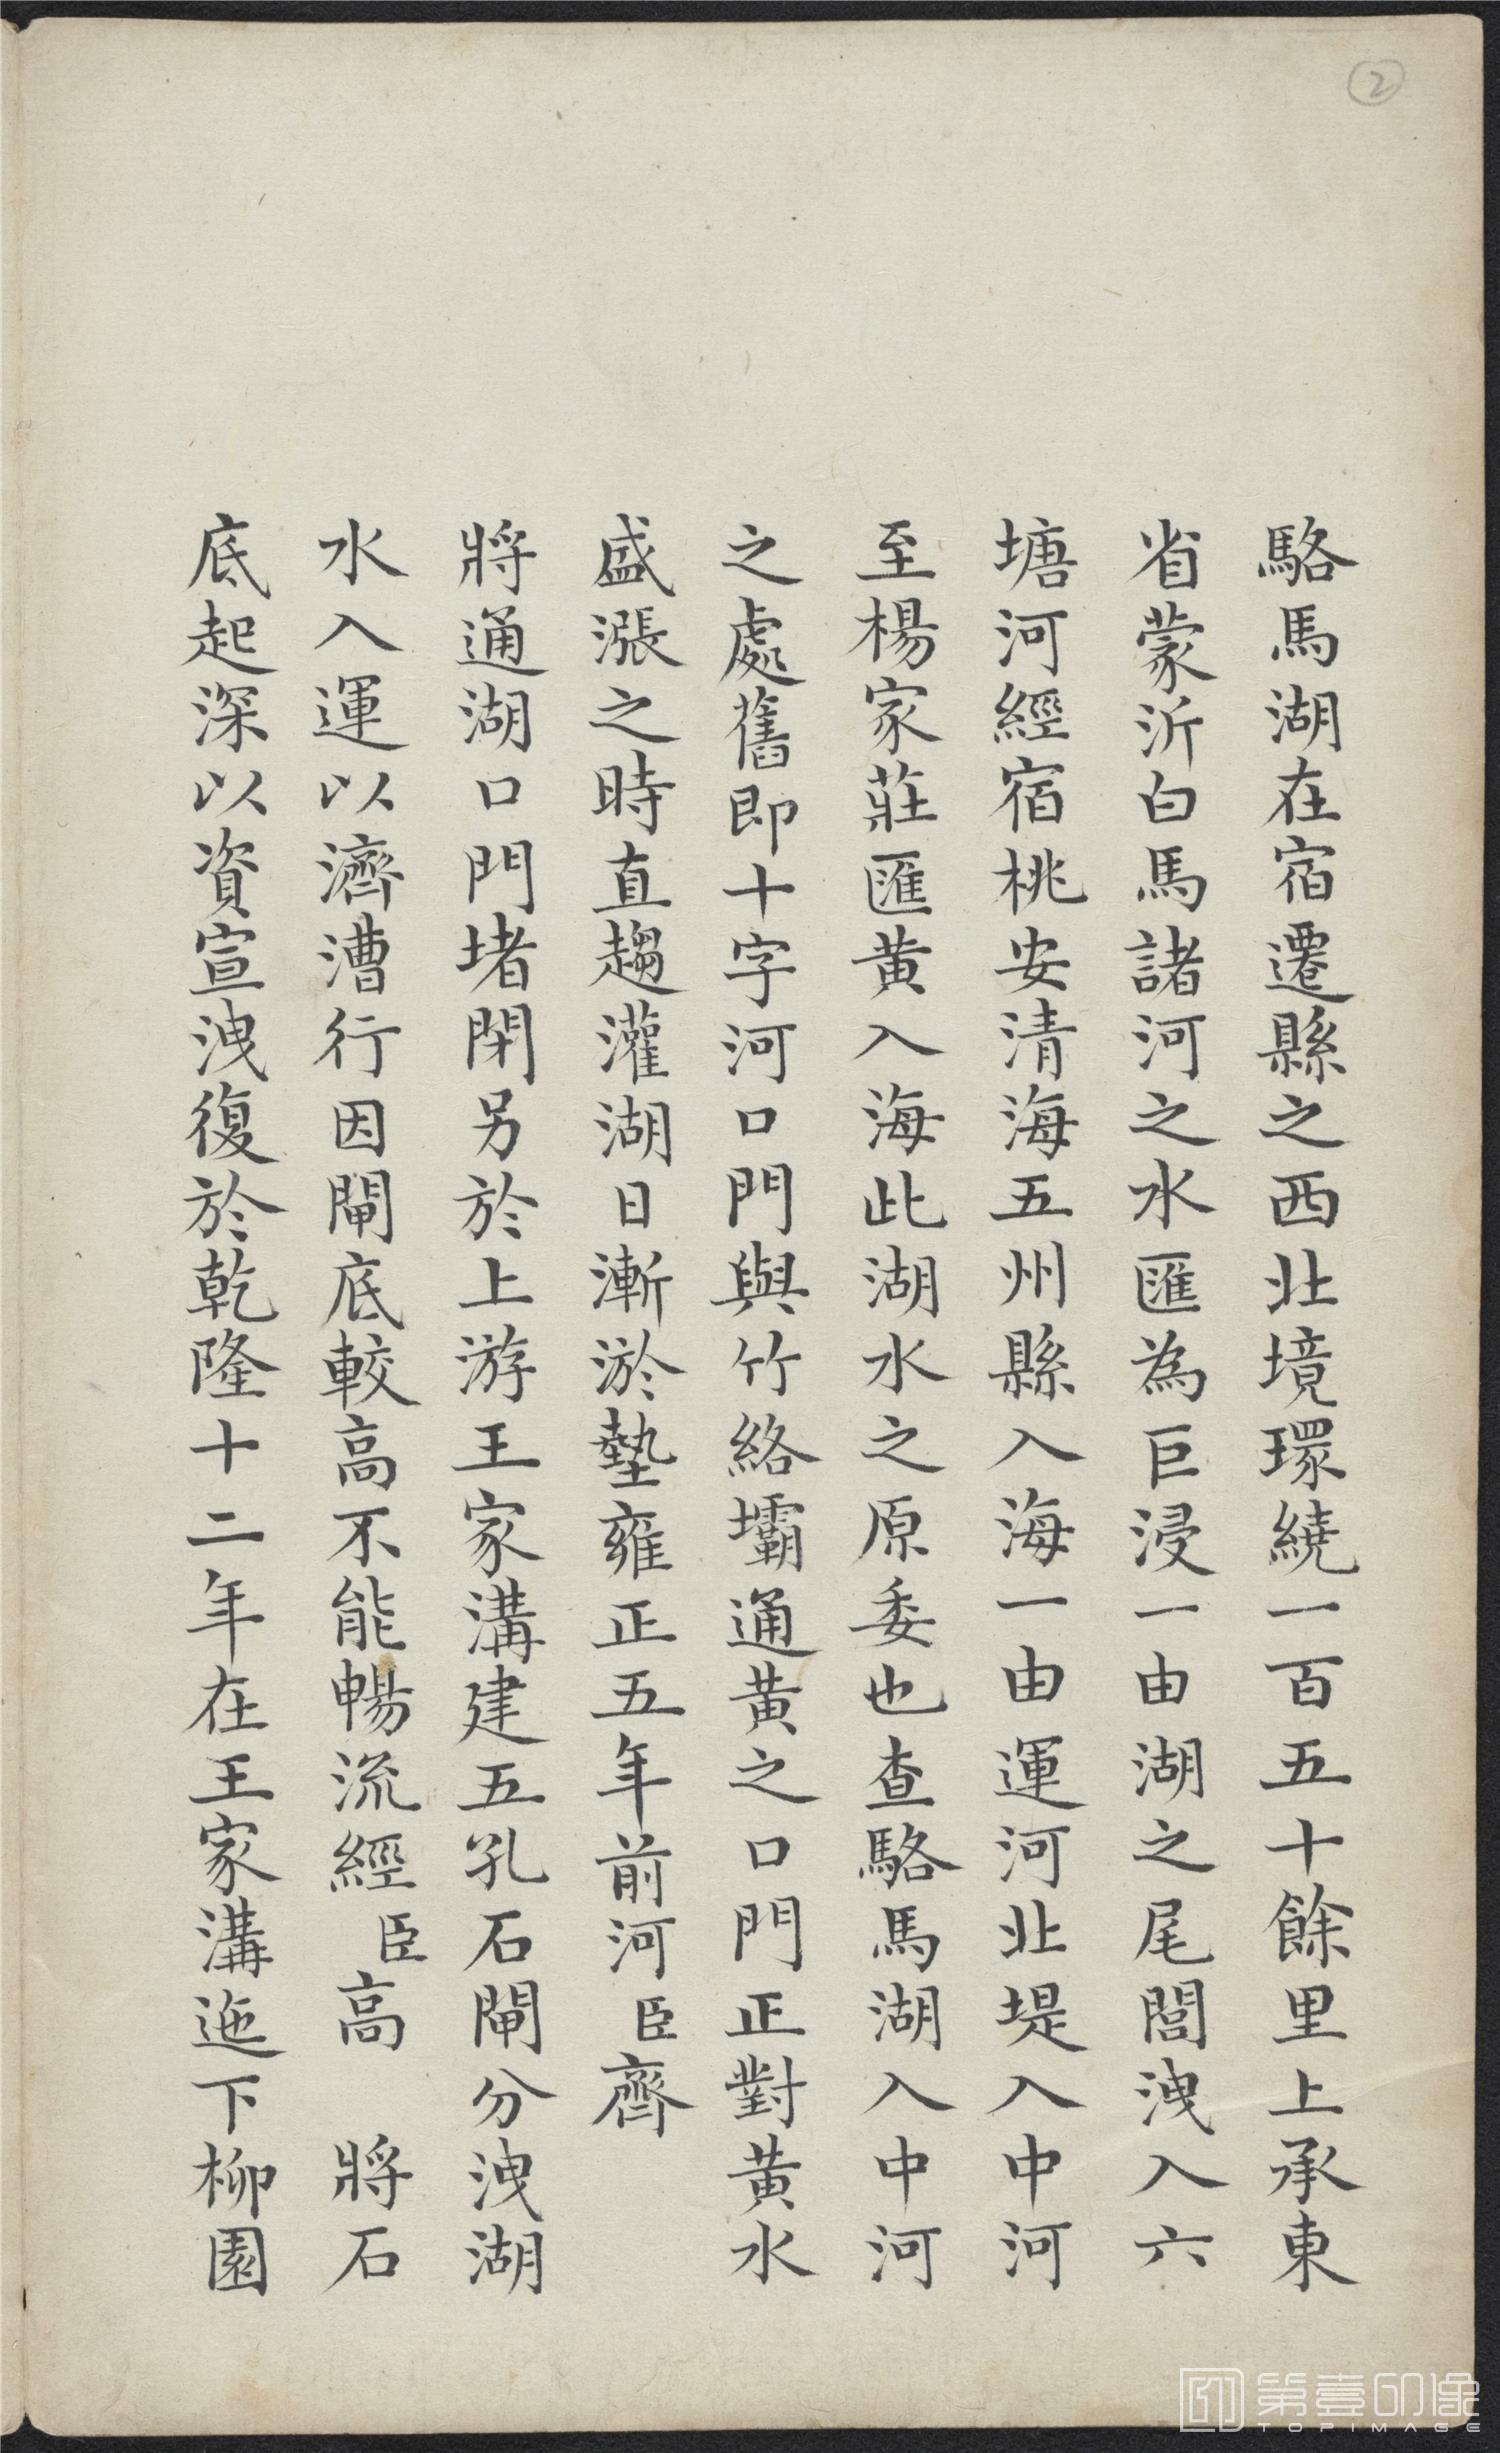 2
駱馬湖在宿遷縣之西北境環繞一百五十餘里上承東
省蒙沂白馬諸河之水匯為巨浸一由湖之尾閭洩入六
塘河經宿桃安清海五州縣入海一由運河北堤入中河
至楊家莊匯黃入海此湖水之原委也查駱馬湖入中河
之處舊即十字河口門與竹絡壩通黃之口門正對黃水
盛漲之時直趨灌湖日漸淤墊雍正五年前河臣齊
將通湖口門堵閉另於上游王家溝建五孔石閘分洩湖
水入運以濟漕行因閘底較高不能暢流經臣高 將石
底起深以資宣洩復於乾隆十二年在王家溝迤下柳園
第壹印像
TOPIMAGE